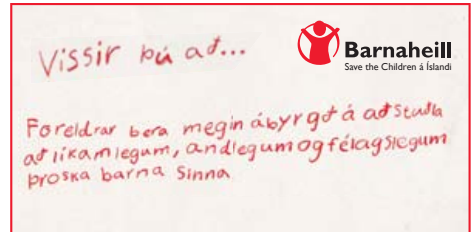 Vissir þú að...
Barnaheill
Save the Children á Íslandi
Foreldrar bera megin ábyrgð á að stuðla
að líkamlegum, andlegum og félagslegum
þroska barna sinna